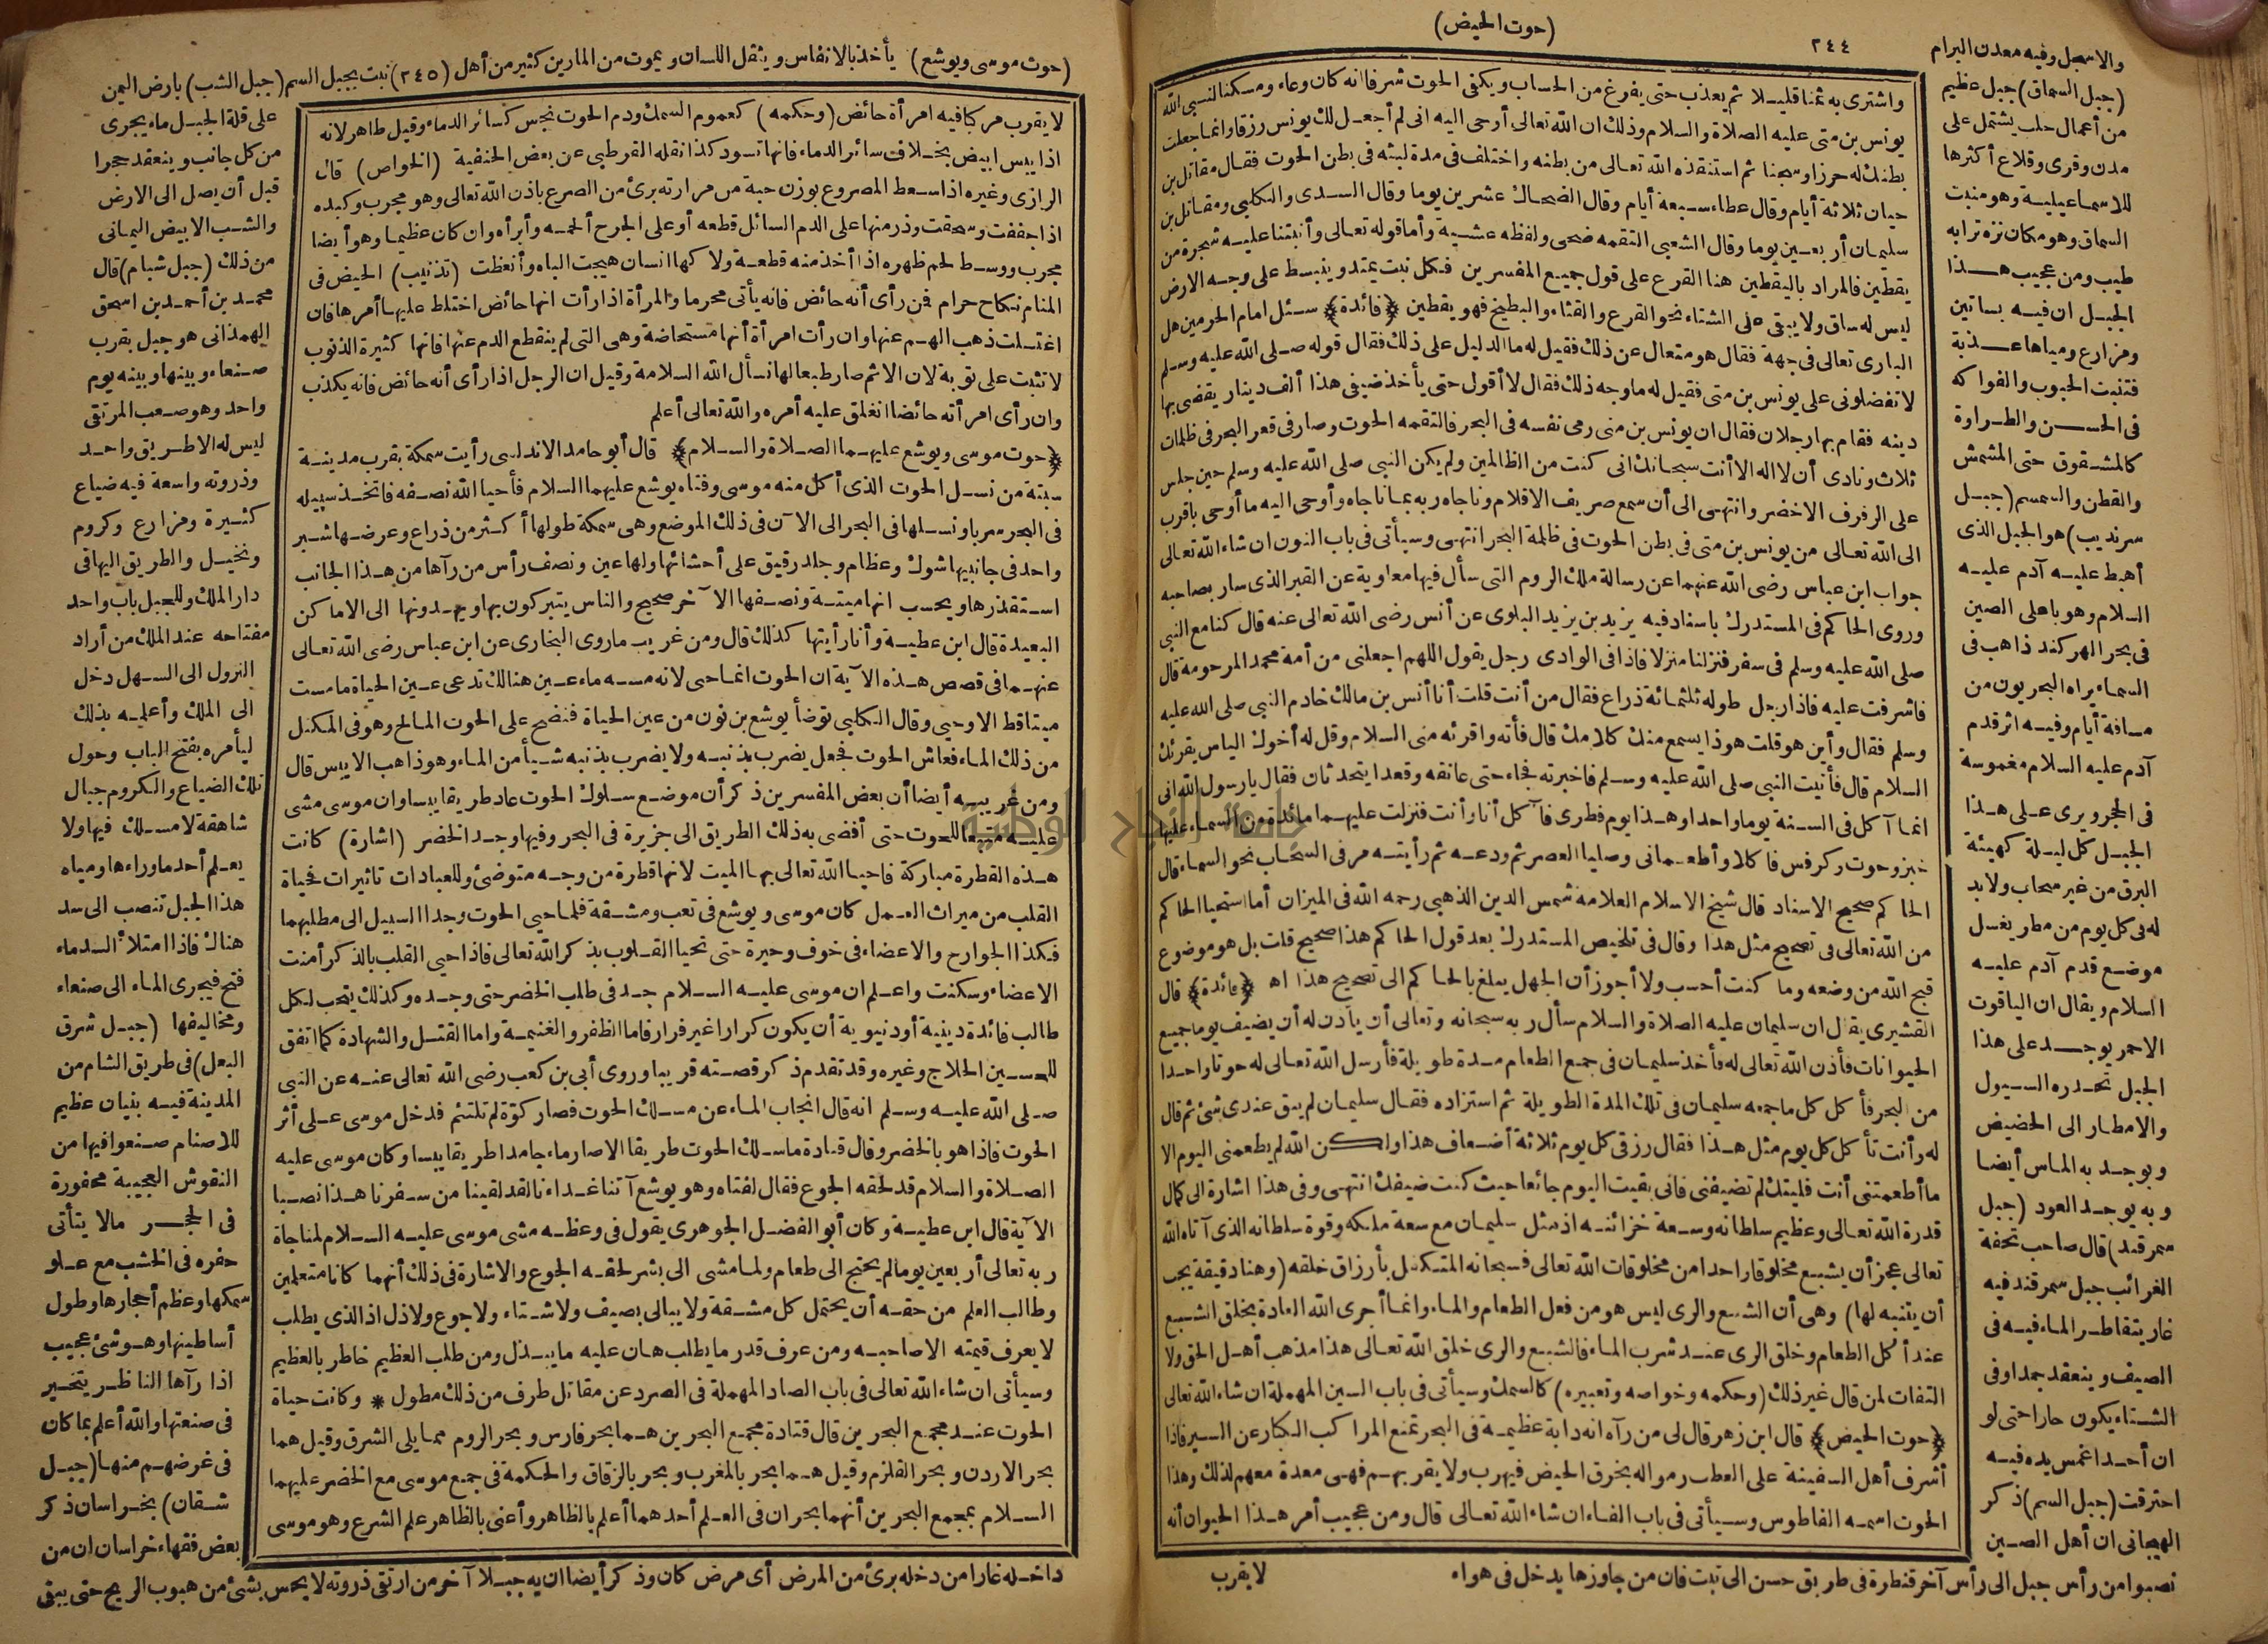 (حوت الحيض)
٢٤٤
واشترى به ثمنا قليلا ثم يعذب حتى يفرغ من الحساب ويكفى الحوت شرفا انه كان وعاء ومسكنا لنبى الله
يونس بن متى عليه الصلاة والسلام وذلك ان الله تعالى أوحى اليه انى لم أجعل لك يونس رزقا وانما جعلت
بطنك له حرزا وسجنا ثم استنقذه الله تعالى من بطنه واختلف فى مدة لبثه فى بطن الحوت فقال مقاتل بن
حيان ثلاثة أيام وقال عطاء سبعة أيام وقال الضحاك عشرين يوما وقال السدى والكلبى ومقاتل بن
سليمان أربعين يوما وقال الشعبى التقمه ضحى ولفظه عشية وأما قوله تعالى وأنبتنا عليه شجرة من
يقطين فالمراد باليقطين هنا القرع على قول جميع المفسرين فكل نبت يمتد وينبسط على وجه الارض
ليس له ساق ولا يبقى على الشتاء نحو القرع والقثاء والبطيخ فهو يقطين ﴿فائدة﴾ سئل امام الحرمين هل
البارى تعالى فى جهة فقال هو متعال عن ذلك فقيل له ما الدليل على ذلك فقال قوله صلى الله عليه وسلم
لا تفضلونى على يونس بن متى فقيل له ما وجه ذلك فقال لا أقول حتى يأخذ ضيفى هذا ألف دينار يقضى بها
دينه فقام بها رجلان فقال ان يونس بن متى رمى نفسه فى البحر فالتقمه الحوت وصار فى قعر البحر فى ظلمات
ثلاث ونادى أن لا اله الا أنت سبحانك انى كنت من الظالمين ولم يكن النبى صلى الله عليه وسلم حين جلس
على الرفرف الاخضر وانتهى الى أن سمع صريف الاقلام وناجاه ربه بما ناجاه وأوحى اليه ما أوحى باقرب
الى الله تعالى من يونس بن متى فى بطن الحوت فى ظلمة البحر انتهى وسيأتى فى باب النون ان شاء الله تعالى
جواب ابن عباس رضى الله عنهما عن رسالة ملك الروم التى سأل فيها معاوية عن القبر الذى سار بصاحبه
وروى الحاكم فى المستدرك باسناد فيه يزيد بن يزيد البلوى عن أنس رضى الله تعالى عنه قال كنا مع النبى
صلى الله عليه وسلم فى سفر فنزلنا منزلا فاذا فى الوادى رجل يقول اللهم اجعلنى من أمة محمد المرحومة قال
فاشرفت عليه فاذا رجل طوله ثلثمائة ذراع فقال من أنت قلت أنا أنس بن مالك خادم النبى صلى الله عليه
وسلم فقال وأين هو قلت هوذا يسمع منك كلامك قال فأته واقرئه منى السلام وقل له أخوك الياس يقرئك
السلام قال فأتيت النبى صلى الله عليه وسلم فاخبرته فجاء حتى عانقه وقعدا يتحدثان فقال يا رسول الله انى
انما آكل فى السنة يوما واحدا وهذا يوم فطرى فآكل أنا وأنت فنزلت عليهما مائدة من السماء عليها
خبز وحوت وكرفس فاكلا وأطعمانى وصليا العصر ثم ودعه ثم رأيته مر فى السحاب نحو السماء قال
الحاكم صحيح الاسناد قال شيخ الاسلام العلامة شمس الدين الذهبى رحمه الله فى الميزان أما استحيا الحاكم
من الله تعالى فى تصحيح مثل هذا وقال فى تلخيص المستدرك بعد قول الحاكم هذا صحيح قلت بل هو موضوع
قبح الله من وضعه وما كنت أحسب ولا أجوز أن الجهل يبلغ بالحاكم الى تصحيح هذا اه ﴿فائدة﴾ قال
القشيرى يقال ان سليمان عليه الصلاة والسلام سأل ربه سبحانه وتعالى أن يأذن له أن يضيف يوما جميع
الحيوانات فأذن الله تعالى له فأخذ سليمان فى جمع الطعام مدة طويلة فأرسل الله تعالى له حوتا واحدا
من البحر فأكل كل ما جمعه سليمان فى تلك المدة الطويلة ثم استزاده فقال سليمان لم يبق عندى شئ ثم قال
له وأنت تأكل كل يوم مثل هذا فقال رزقى كل يوم ثلاثة أضعاف هذا ولكن الله لم يطعمنى اليوم الا
ما أطعمتنى أنت فليتك لم تضيفنى فانى بقيت اليوم جائعا حيث كنت ضيفك انتهى وفى هذا اشارة الى كمال
قدرة الله تعالى وعظيم سلطانه وسعة خزائنه اذ مثل سليمان مع سعة ملكه وقوة سلطانه الذى آتاه الله
تعالى عجز أن يشبع مخلوقا واحدا من مخلوقات الله تعالى فسبحانه المتكفل بأرزاق خلقه (وهنا دقيقة يجب
أن يتنبه لها) وهى أن الشبع والرى ليس هو من فعل الطعام والماء وانما أجرى الله العادة بخلق الشبع
عند أكل الطعام وخلق الرى عند شرب الماء فالشبع والرى خلق الله تعالى هذا مذهب أهل الحق ولا
التفات لمن قال غير ذلك (وحكمه وخواصه وتعبيره) كالسمك وسيأتى فى باب السين المهملة ان شاء الله تعالى
﴿حوت الحيض﴾ قال ابن زهر قال لى من رآه انه دابة عظيمة فى البحر تمنع المراكب الكبار عن السير فاذا
أشرف أهل السفينة على العطب رموا له بخرق الحيض فيهرب ولا يقربهم فهى معدة معهم لذلك وهذا
الحوت اسمه الفاطوس وسيأتى فى باب الفاء ان شاء الله تعالى قال ومن عجيب أمر هذا الحيوان أنه
لا يقرب
والاسهل وفيه معدن البرام
(جبل السماق) جبل عظيم
من أعمال حلب يشتمل على
مدن وقرى وقلاع أكثرها
للاسماعيلية وهو منبت
السماق وهو مكان نزه ترابه
طيب ومن عجيب هذا
الجبل ان فيه بساتين
ومزارع ومياها عذبة
فتنبت الحبوب والفواكه
فى الحسن والطراوة
كالمشقوق حتى المشمش
والقطن والسمسم (جبل
سرنديب) هو الجبل الذى
أهبط عليه آدم عليه
السلام وهو باعلى الصين
فى بحر الهركند ذاهب فى
السماء يراه البحريون من
مسافة أيام وفيه اثر قدم
آدم عليه السلام مغموسة
فى الحجر ويرى على هذا
الجبل كل ليلة كهيئة
البرق من غير سحاب ولا بد
له فى كل يوم من مطر يغسل
موضع قدم آدم عليه
السلام ويقال ان الياقوت
الاحمر يوجد على هذا
الجبل تحدره السيول
والامطار الى الحضيض
ويوجد به الماس أيضا
وبه يوجد العود (جبل
سمرقند) قال صاحب تحفة
الغرائب جبل سمرقند فيه
غار يتقاطر الماء فيه فى
الصيف وينعقد جمدا وفى
الشتاء يكون حارا حتى لو
ان أحدا غمس يده فيه
احترقت (جبل السم) ذكر
الهيجانى ان أهل الصين
نصبوا من رأس جبل الى رأس آخر قنطرة فى طريق حسن الى تبت فان من جاوزها يدخل فى هواء
(حوت موسى ويوشع) يأخذ بالانفاس ويثقل اللسان ويموت من المارين كثير من أهل (٢٤٥) تبت بجبل السم (جبل الشب) بارض اليمن
لا يقرب مركبا فيه امرأة حائض (وحكمه) كعموم السمك ودم الحوت نجس كسائر الدماء وقيل طاهر لانه
اذا يبس ابيض بخلاف سائر الدماء فانها تسود كذا نقله القرطبى عن بعض الحنفية (الخواص) قال
الرازى وغيره اذا سعط المصروع بوزن حبة من مرارته برئ من الصرع باذن الله تعالى وهو مجرب وكبده
اذا جففت وسحقت وذر منها على الدم السائل قطعه أو على الجرح ألحمه وأبرأه وان كان عظيما وهو أيضا
مجرب ووسط لحم ظهره اذا أخذ منه قطعة ولاكها انسان هيجت الباه وأنعظت (تذنيب) الحيض فى
المنام نكاح حرام فمن رأى أنه حائض فانه يأتى محرما والمرأة اذا رأت انها حائض اختلط عليها أمرها فان
اغتسلت ذهب الهم عنها وان رأت امرأة أنها مستحاضة وهى التى لم ينقطع الدم عنها فانها كثيرة الذنوب
لا تثبت على توبة لان الاثم صار طبعا لها نسأل الله السلامة وقيل ان الرجل اذا رأى أنه حائض فانه يكذب
وان رأى امرأته حائضا انغلق عليه أمره والله تعالى أعلم
﴿حوت موسى ويوشع عليهما الصلاة والسلام﴾ قال أبو حامد الاندلسى رأيت سمكة بقرب مدينة
سبتة من نسل الحوت الذى أكل منه موسى وفتاه يوشع عليهما السلام فأحيا الله نصفه فاتخذ سبيله
فى البحر سربا ونسلها فى البحر الى الآن فى ذلك الموضع وهى سمكة طولها أكثر من ذراع وعرضها شبر
واحد فى جانبيها شوك وعظام وجلد رقيق على أحشائها ولها عين ونصف رأس من رآها من هذا الجانب
استقذرها ويحسب انها ميتة ونصفها الآخر صحيح والناس يتبركون بها ويهدونها الى الاماكن
البعيدة قال ابن عطية وأنا رأيتها كذلك قال ومن غريب ما روى البخارى عن ابن عباس رضى الله تعالى
عنهما فى قصص هذه الآية ان الحوت انما حى لانه مسه ماء عين هنالك تدعى عين الحياة ما مست
ميتا قط الا وحيى وقال الكلبى توضأ يوشع بن نون من عين الحياة فنضح على الحوت المالح وهو فى المكتل
من ذلك الماء فعاش الحوت فجعل يضرب بذنبه ولا يضرب بذنبه شيأ من الماء وهو ذاهب الا يبس قال
ومن غريبه أيضا أن بعض المفسرين ذكر أن موضع سلوك الحوت عاد طريقا يبسا وان موسى مشى
عليه متبعا للحوت حتى أفضى به ذلك الطريق الى جزيرة فى البحر وفيها وجد الخضر (اشارة) كانت
هذه القطرة مباركة فاحيا الله تعالى بها الميت لانها قطرة من وجه متوضئ وللعبادات تاثيرات فحياة
القلب من ميراث العمل كان موسى ويوشع فى تعب ومشقة فلما حيى الحوت وجدا السبيل الى مطلبهما
فكذا الجوارح والاعضاء فى خوف وحيرة حتى تحيا القلوب بذكر الله تعالى فاذا حيى القلب بالذكر أمنت
الاعضاء وسكنت واعلم ان موسى عليه السلام جد فى طلب الخضر حتى وجده وكذلك يجب لكل
طالب فائدة دينية أو دنيوية أن يكون كرارا غير فرار فاما الظفر والغنيمة واما القتل والشهادة كما اتفق
للحسين الحلاج وغيره وقد تقدم ذكر قصته قريبا وروى أبى بن كعب رضى الله تعالى عنه عن النبى
صلى الله عليه وسلم انه قال انجاب الماء عن مسلك الحوت فصار كوة لم تلتئم فدخل موسى على أثر
الحوت فاذا هو بالخضر وقال قتادة ما سلك الحوت طريقا الا صار ماء جامدا طريقا يبسا وكان موسى عليه
الصلاة والسلام قد لحقه الجوع فقال لفتاه وهو يوشع آتنا غداءنا لقد لقينا من سفرنا هذا نصبا
الآية قال ابن عطية وكان أبو الفضل الجوهرى يقول فى وعظه مشى موسى عليه السلام لمناجاة
ربه تعالى أربعين يوما لم يحتج الى طعام ولما مشى الى بشر لحقه الجوع والاشارة فى ذلك أنهما كانا متعلمين
وطالب العلم من حقه أن يحتمل كل مشقة ولا يبالى بصيف ولا شتاء ولا جوع ولا ذل اذ الذى يطلب
لا يعرف قيمته الا صاحبه ومن عرف قدر ما يطلب هان عليه ما يبذل ومن طلب العظيم خاطر بالعظيم
وسيأتى ان شاء الله تعالى فى باب الصاد المهملة فى الصرد عن مقاتل طرف من ذلك مطول * وكانت حياة
الحوت عند مجمع البحرين قال قتادة مجمع البحرين هما بحر فارس وبحر الروم مما يلى الشرق وقيل هما
بحر الاردن وبحر القلزم وقيل هما بحر بالمغرب وبحر بالزقاق والحكمة فى جمع موسى مع الخضر عليهما
السلام بمجمع البحرين أنهما بحران فى العلم أحدهما أعلم بالظاهر وأعنى بالظاهر علم الشرع وهو موسى
على قلة الجبل ماء يجرى
من كل جانب وينعقد حجرا
قبل أن يصل الى الارض
والشب الابيض اليمانى
من ذلك (جبل شبام) قال
محمد بن أحمد بن اسحق
الهمذانى هو جبل بقرب
صنعاء وبينها وبينه يوم
واحد وهو صعب المرتقى
ليس له الا طريق واحد
وذروته واسعة فيه ضياع
كثيرة ومزارع وكروم
ونخيل والطريق اليها فى
دار الملك وللجبل باب واحد
مفتاحه عند الملك من أراد
النزول الى السهل دخل
الى الملك وأعلمه بذلك
ليأمره بفتح الباب وحول
تلك الضياع والكروم جبال
شاهقة لا مسلك فيها ولا
يعلم أحد ما وراءها ومياه
هذا الجبل تنصب الى سد
هناك فاذا امتلأ السد ماء
فتح فيجرى الماء الى صنعاء
ومخاليفها (جبل شرق
البعل) فى طريق الشام من
المدينة فيه بنيان عظيم
للاصنام صنعوا فيها من
النقوش العجيبة محفورة
فى الحجر مالا يتأتى
حفره فى الخشب مع علو
سمكها وعظم أحجارها وطول
أساطينها وهو شئ عجيب
اذا رآها الناظر يتحير
فى صنعتها والله أعلم بما كان
فى غرضهم منها (جبل
شقان) بخراسان ذكر
بعض فقهاء خراسان ان من
داخله غارا من دخله برئ من المرض أى مرض كان وذكر أيضا ان به جبلا آخر من ارتقى ذروته لا يحس بشئ من هبوب الريح حتى يبقى
جامعة النجاح الوطنية